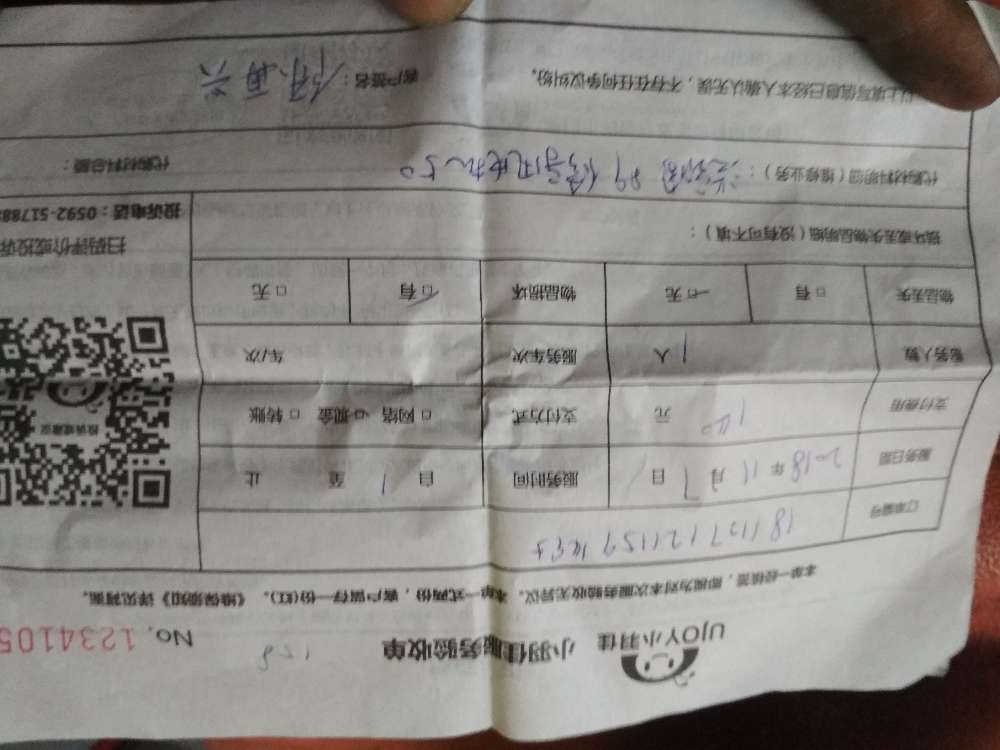 UJOY小羽佳 小羽佳服务验收单 No. 1234105
本单一经核签,即视为对本次服务验收无异议。本单一式两份,客户留存一份(红)。《维保须知》详见背面。
订单编号
服务日期 2018年11月7日 服务时间 自 1 至 止
支付费用 140 元 支付方式 □网络 □现金 □转账
服务人数 1人 服务车次 车/次
物品丢失 □有 □无 物品损坏 □有 □无
损坏或丢失物品明细(没有可不填):
投诉或建议
扫码评价或投诉
投诉电话:0592-51788
代购材料明细(维修业务): 50 代购材料总额:
以上填写信息已经本人确认无误,不存在任何争议纠纷。 客户签名: